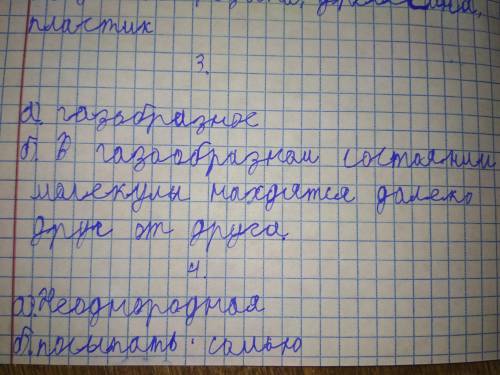 пластик
3.
а) газобразное
б) В газаобразном состоянии
малекулы находятся далеко
друг от друга.
4.
а) Неоднородная
б) посыпать солью